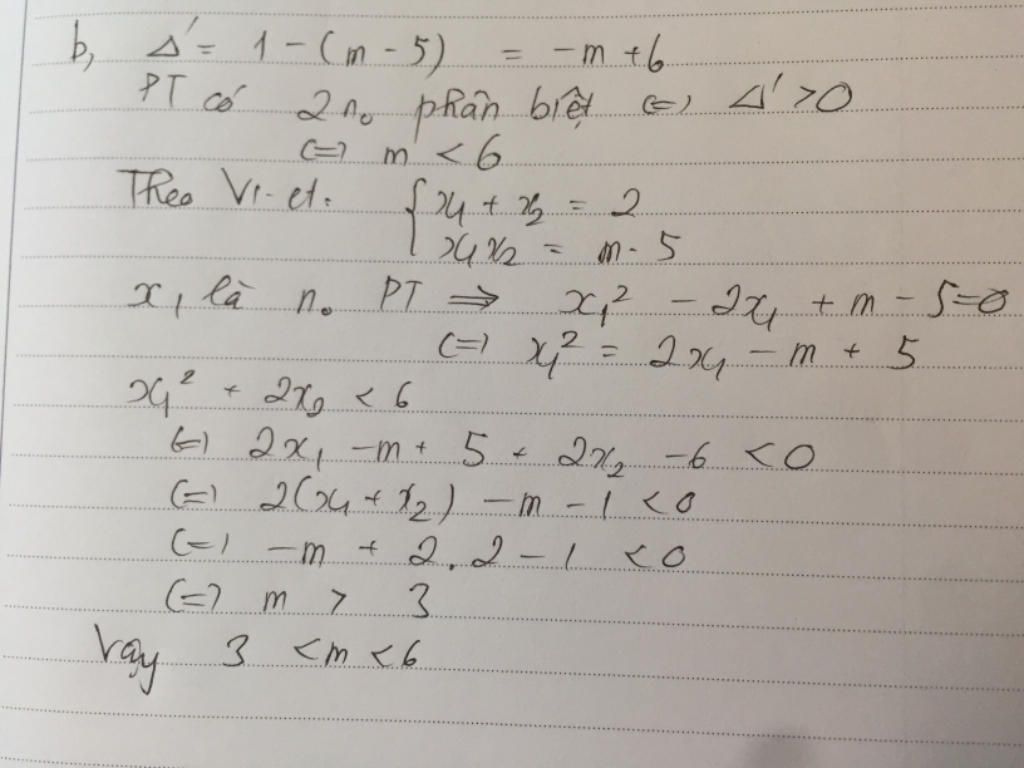 b, Δ' = 1 - (m - 5) = -m + 6
PT có 2 n₀ phân biệt (=) Δ' > 0
(=) m < 6
Theo Vi-et: { x₁ + x₂ = 2
x₁x₂ = m - 5
x₁ là n₀ PT => x₁² - 2x₁ + m - 5 = 0
(=) x₁² = 2x₁ - m + 5
x₁² + 2x₂ < 6
(=) 2x₁ - m + 5 + 2x₂ - 6 < 0
(=) 2(x₁ + x₂) - m - 1 < 0
(=) -m + 2.2 - 1 < 0
(=) m > 3
Vậy 3 < m < 6